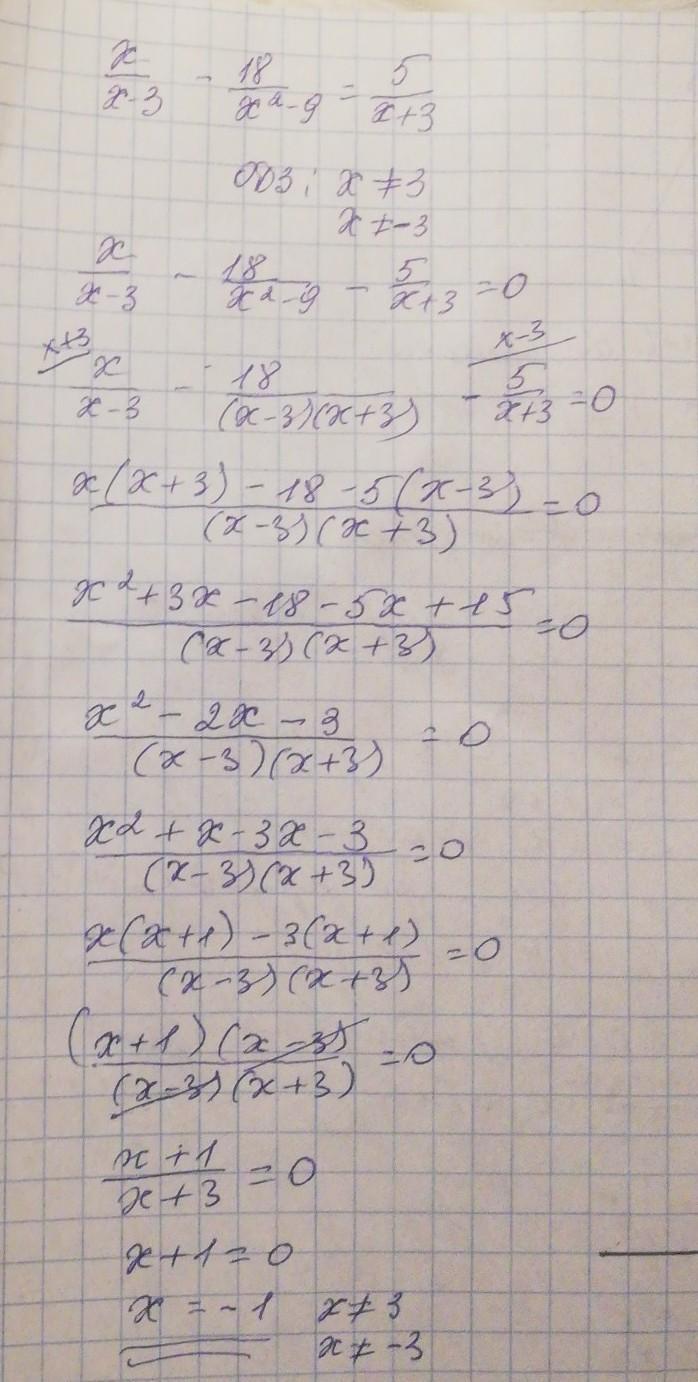 x/(x-3) - 18/(x²-9) = 5/(x+3)
ОДЗ: x ≠ 3
x ≠ -3
x/(x-3) - 18/(x²-9) - 5/(x+3) = 0
x+3 x-3
x/(x-3) - 18/((x-3)(x+3)) - 5/(x+3) = 0
(x(x+3) - 18 - 5(x-3))/((x-3)(x+3)) = 0
(x² + 3x - 18 - 5x + 15)/((x-3)(x+3)) = 0
(x² - 2x - 3)/((x-3)(x+3)) = 0
(x² + x - 3x - 3)/((x-3)(x+3)) = 0
(x(x+1) - 3(x+1))/((x-3)(x+3)) = 0
((x+1)(x-3))/((x-3)(x+3)) = 0
(x+1)/(x+3) = 0
x+1 = 0
x = -1 x ≠ 3
x ≠ -3